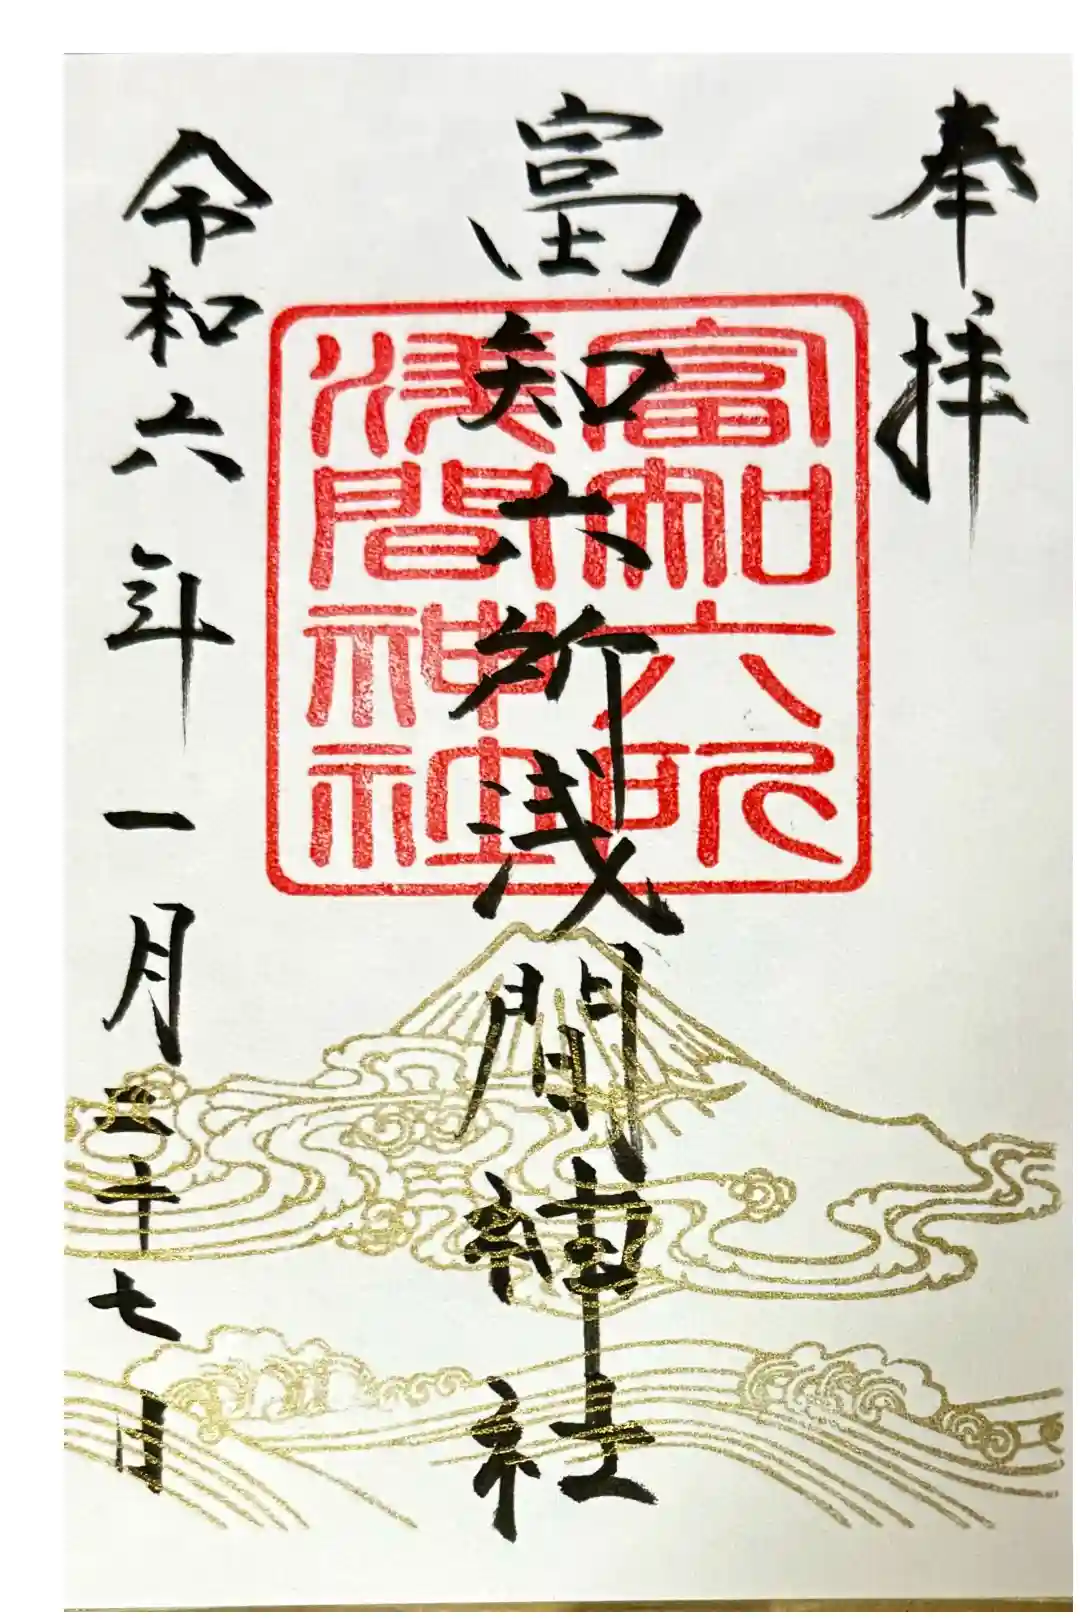 奉拝
富知六所浅間神社
富知六所
浅間神社
令和六年一月二十七日